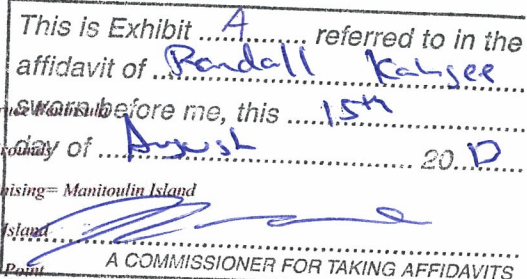 This is Exhibit ... A ... referred to in the
affidavit of ... Randall
sworn before me, this ... 15th
day of ... August ... 20
nising= Manitoulin Island
Island
Point
A COMMISSIONER FOR TAKING AFFIDAVITS